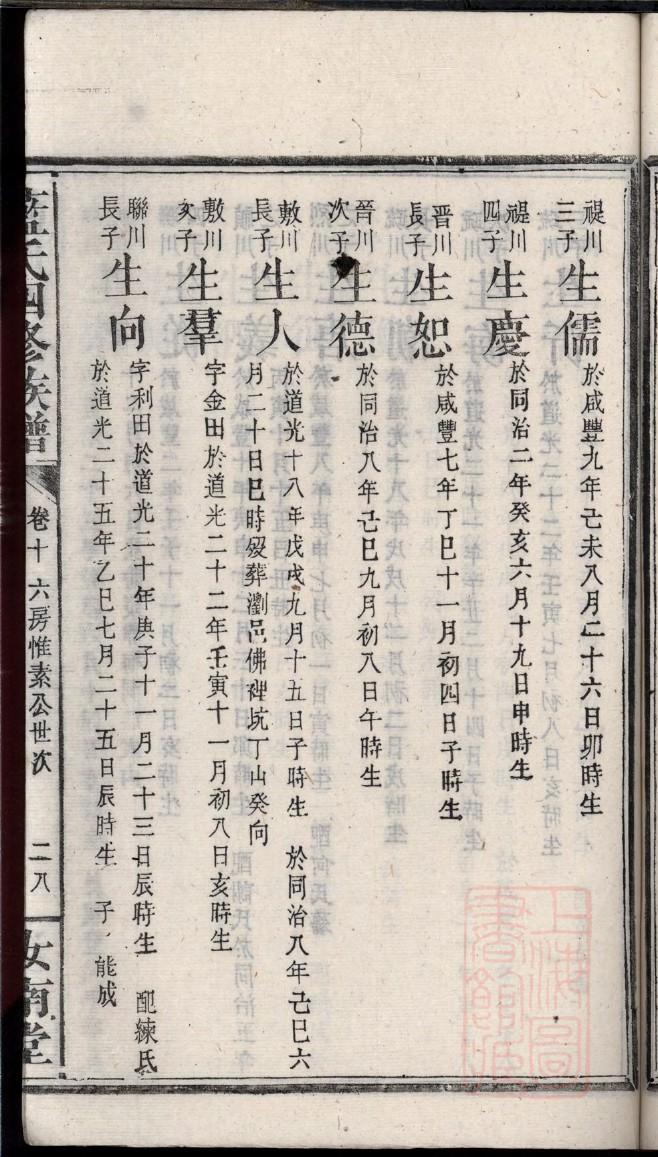 禔川三子 生儒 於咸豐九年己未八月二十六日卯時生
禔川四子 生慶 於同治二年癸亥六月十九日申時生
晋川長子 生恕 於咸豐七年丁巳十一月初四日子時生
晉川次子 生德 於同治八年己巳九月初八日午時生
敷川長子 生人 於道光十八年戊戌九月十五日子時生 於同治八年己巳六
月二十日巳時歿葬瀏邑佛裡坑丁山癸向
敷川次子 生羣 字金田於道光二十二年壬寅十一月初八日亥時生
聯川長子 生向 字利田於道光二十年庚子十一月二十三日辰時生 配練氏
於道光二十五年乙巳七月二十五日辰時生 子 能成
藍氏四修族譜
卷十 六房惟素公世次
二八
汝南堂
上海圖書館藏